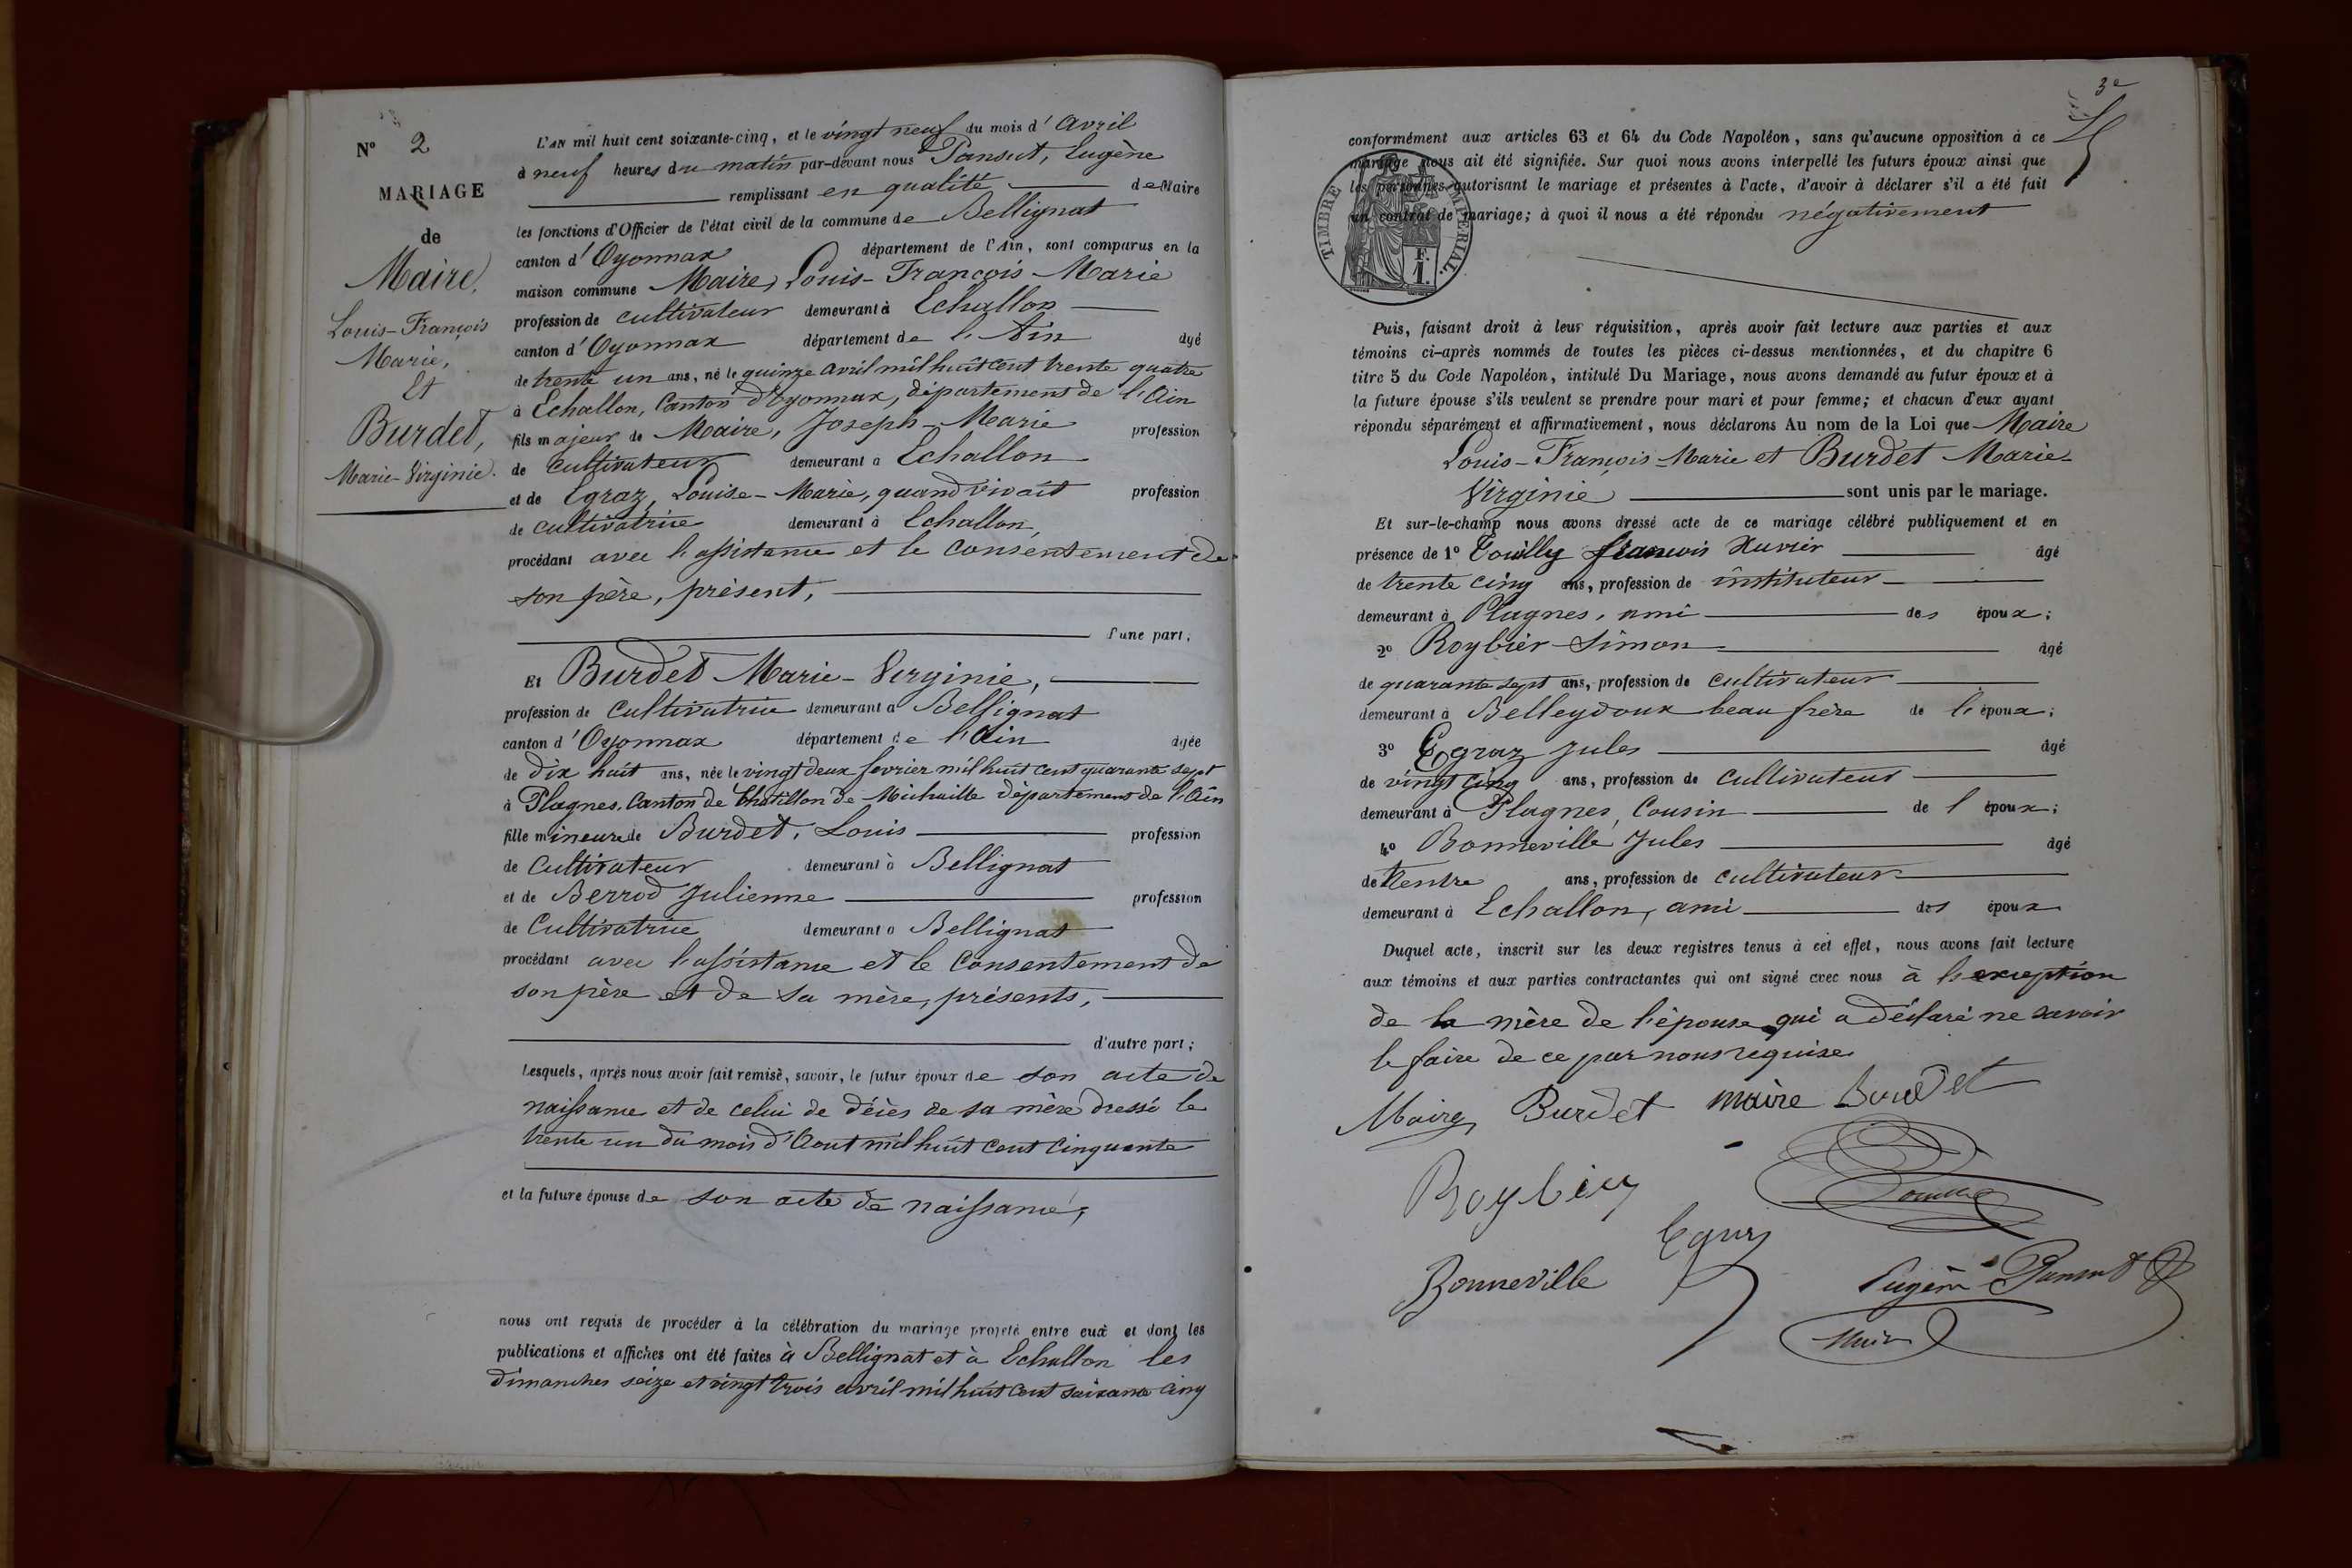 Nº 2
MARIAGE
de
Maire,
Louis-François
Marie,
Et
Burdet,
Marie-Virginie.
L'AN mil huit cent soixante-cinq, et le vingt neuf du mois d'Avril
à neuf heures du matin par-devant nous Pansut, Eugène
remplissant en qualité de Maire
les fonctions d'Officier de l'état civil de la commune de Bellignat
canton d'Oyonnax département de l'Ain, sont comparus en la
maison commune Maire, Louis-François-Marie
profession de cultivateur demeurant à Echallon
canton d'Oyonnax département de l'Ain âgé
de trente un ans, né le quinze avril mil huit cent trente quatre
à Echallon, Canton d'Oyonnax, département de l'Ain
fils majeur de Maire, Joseph-Marie profession
de cultivateur demeurant à Echallon
et de Egraz, Louise-Marie, quand vivait profession
de cultivatrice demeurant à Echallon,
procédant avec l'assistance et le consentement de
son père, présent,
d'une part,
Et Burdet Marie-Virginie,
profession de Cultivatrice demeurant à Bellignat
canton d'Oyonnax département de l'Ain âgée
de dix huit ans, née le vingt deux fevrier mil huit cent quarante sept
à Plagnes, Canton de Chatillon de Michaille département de l'Ain
fille mineure de Burdet, Louis profession
de Cultivateur demeurant à Bellignat
et de Berrod Julienne profession
de Cultivatrice demeurant à Bellignat
procédant avec l'assistance et le Consentement de
son père et de sa mère, présents,
d'autre part;
Lesquels, après nous avoir fait remise, savoir, le futur époux de son acte de
naissance et de celui de décès de sa mère dressé le
trente un du mois d'Aout mil huit cent cinquante
et la future épouse de son acte de naissance,
nous ont requis de procéder à la célébration du mariage projeté entre eux et dont les
publications et affiches ont été faites à Bellignat et à Echallon les
dimanches seize et vingt trois avril mil huit cent soixante cinq
3e
conformément aux articles 63 et 64 du Code Napoléon, sans qu'aucune opposition à ce
mariage nous ait été signifiée. Sur quoi nous avons interpellé les futurs époux ainsi que
les personnes autorisant le mariage et présentes à l'acte, d'avoir à déclarer s'il a été fait
un contrat de mariage; à quoi il nous a été répondu négativement
TIMBRE IMPÉRIAL.
F.
1.
Puis, faisant droit à leur réquisition, après avoir fait lecture aux parties et aux
témoins ci-après nommés de toutes les pièces ci-dessus mentionnées, et du chapitre 6
titre 5 du Code Napoléon, intitulé Du Mariage, nous avons demandé au futur époux et à
la future épouse s'ils veulent se prendre pour mari et pour femme; et chacun d'eux ayant
répondu séparément et affirmativement, nous déclarons Au nom de la Loi que Maire
Louis-François-Marie et Burdet Marie-
Virginie sont unis par le mariage.
Et sur-le-champ nous avons dressé acte de ce mariage célébré publiquement et en
présence de 1º Touilly françois Xavier âgé
de trente cinq ans, profession de instituteur
demeurant à Plagnes, ami des époux;
2º Roybier Simon âgé
de quarante sept ans, profession de cultivateur
demeurant à Belleydoux beau frère de l'époux;
3º Egraz Jules âgé
de vingt cinq ans, profession de cultivateur
demeurant à Plagnes, Cousin de l'époux;
4º Bonneville Jules âgé
de trente ans, profession de cultivateur
demeurant à Echallon, ami des époux
Duquel acte, inscrit sur les deux registres tenus à cet effet, nous avons fait lecture
aux témoins et aux parties contractantes qui ont signé avec nous à l'exception
de la mère de l'épouse qui a déclaré ne savoir
le faire de ce par nous requise
Maire Burdet maire Burdet
Roybier
Egraz
Bonneville Eugène Pansut
Maire